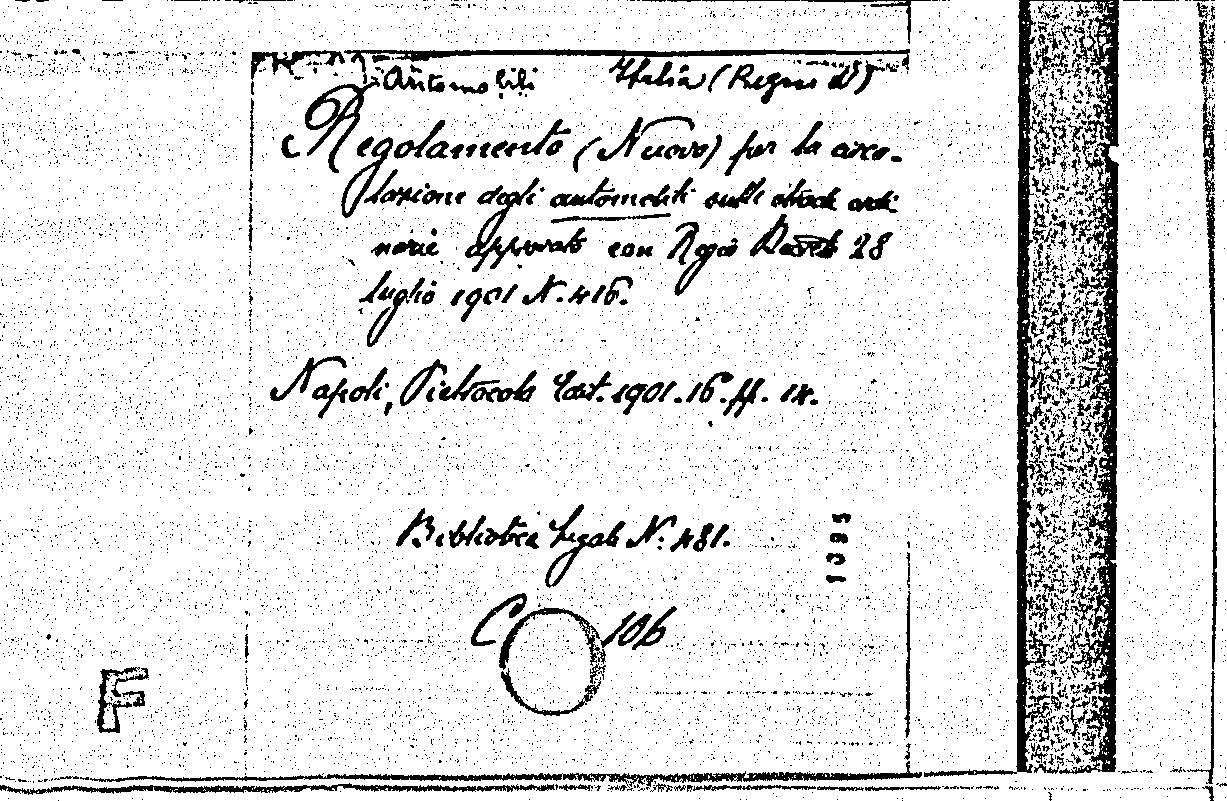 Automobili Italia (Regno d')
Regolamento (Nuovo) per la circo-
lazione degli automobili sulle strade ordi
narie approvato con Regio Decreto 28
luglio 1901 N. 416.
Napoli, Pietrocola Edit. 1901. 16. pp. 14.
Biblioteca legale N. 481.
1095
C 106
F